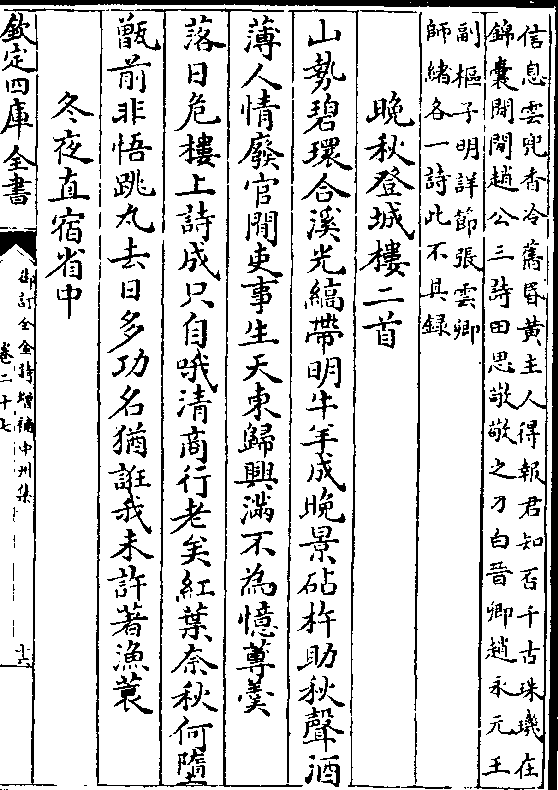 信息雲兜香冷篤昏黄主人得報君知否千古珠璣在
錦囊閒閒趙公三詩田思敬敬之刁白晉卿趙永元王
副樞子明詳節張雲卿
師緒各一詩此不具録
晚秋登城樓二首
山勢碧環合溪光縞帶明牛羊成晚景砧杵助秋聲酒
薄人情廢官閒吏事生天東歸興滿不為憶蓴羮
落日危樓上詩成只自哦清商行老矣紅葉奈秋何墮
甑前非悟跳丸去日多功名猶誑我未許著漁蓑
冬夜直宿省中
欽定四庫全書
御訂全金詩增補中州集
卷二十七
十六